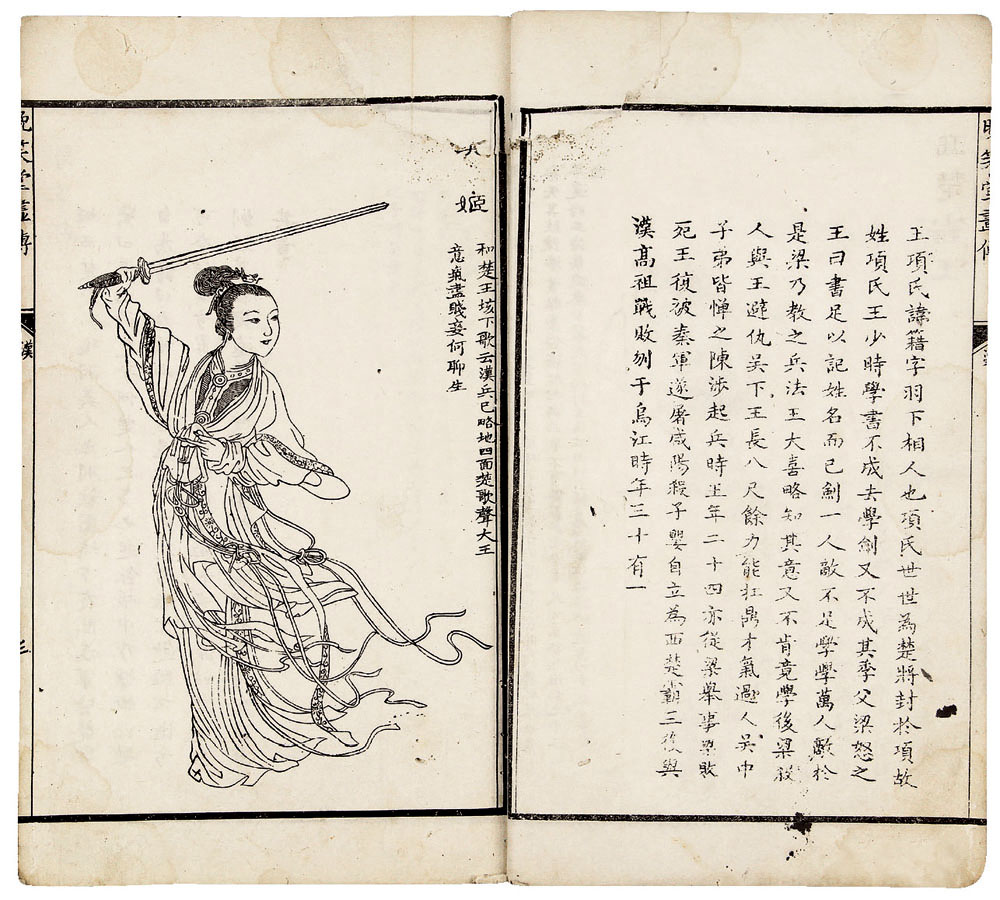 笑堂畫傳
王項氏諱籍字羽下相人也項氏世世為楚將封於項故
姓項氏王少時學書不成去學劍又不成其季父梁怒之
王曰書足以記姓名而已劍一人敵不足學學萬人敵於
是梁乃教之兵法王大喜略知其意又不肯竟學後梁殺
人與王避仇吳下王長八尺餘力能扛鼎才氣過人吳中
子弟皆憚之陳涉起兵時王年二十四亦從梁舉事梁敗
死王復破秦軍遂屠咸陽殺子嬰自立為西楚霸王後與
漢高祖戰敗刎于烏江時年三十有一
姬
和楚王垓下歌云漢兵已略地四面楚歌聲大王
意氣盡賤妾何聊生
晚笑堂畫傳
漢